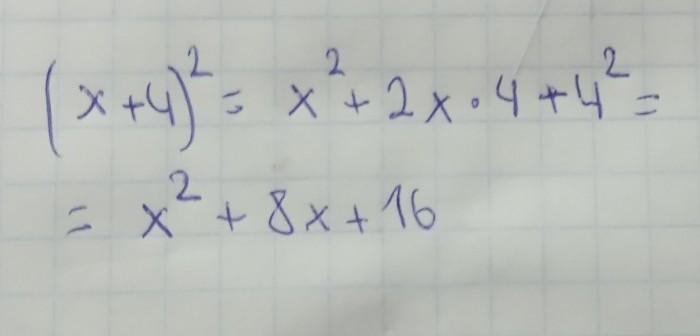 (x+4)² = x² + 2x · 4 + 4² =
= x² + 8x + 16